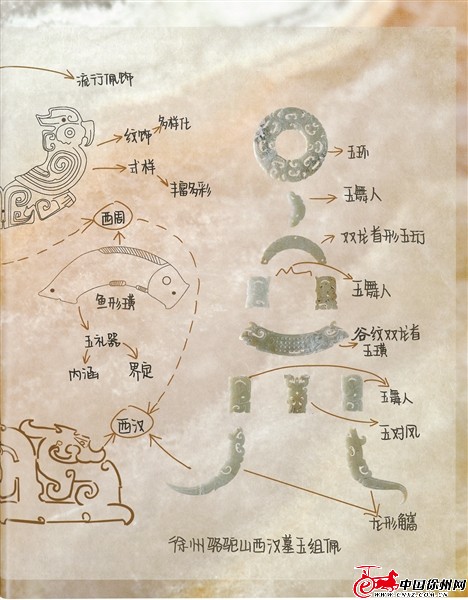 流行佩饰
纹饰
多样化
式样
丰富多彩
西周
鱼形璜
玉礼器
内涵
界定
西汉
玉环
玉舞人
双龙首形玉珩
玉舞人
谷纹双龙首
玉璜
玉舞人
玉对凤
龙形角觿
徐州骆驼山西汉墓玉组佩
中国徐州网
www.cnxz.com.cn